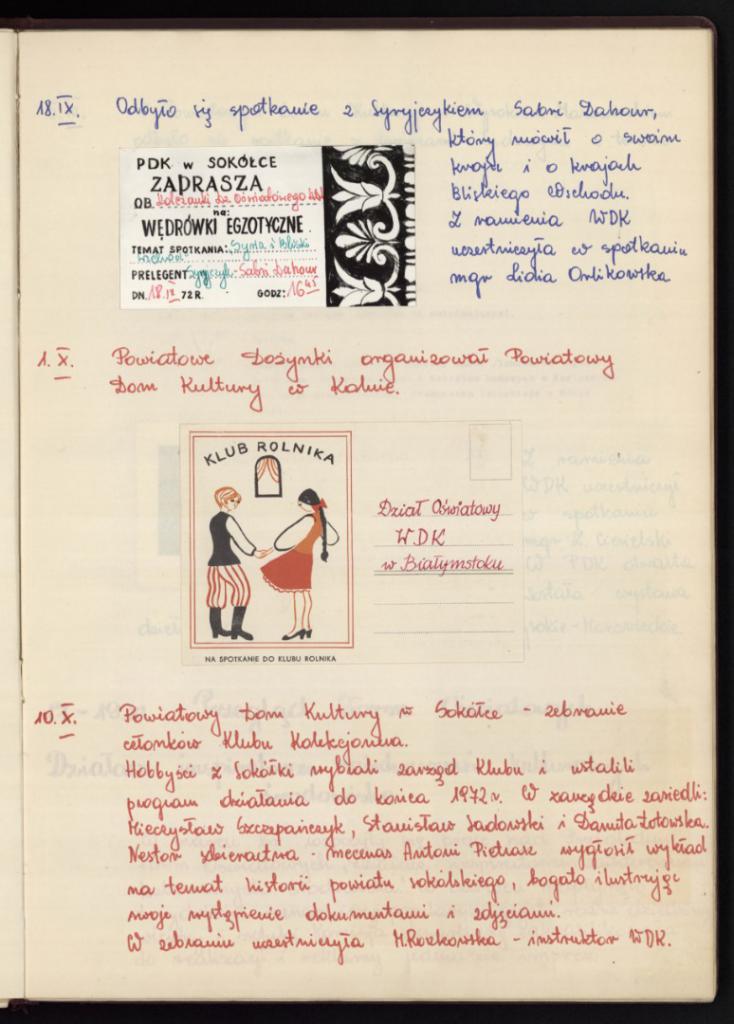 18.IX. Odbyło się spotkanie z Syryjczykiem Sabri Dahour,
który mówił o swoim
kraju i o krajach
Bliskiego Wschodu.
Z ramienia WDK
uczestniczyła w spotkaniu
mgr Lidia Orlikowska
PDK w SOKÓŁCE
ZAPRASZA
OB.
na:
WĘDRÓWKI EGZOTYCZNE
TEMAT SPOTKANIA: Syria i Bliski
Wschód
PRELEGENT Syryjczyk-Sabri Dahour
DN. 18.IX 72 R. GODZ: 16 45
1.X. Powiatowe Dożynki organizował Powiatowy
Dom Kultury w Kolnie.
KLUB ROLNIKA
NA SPOTKANIE DO KLUBU ROLNIKA
Dział Oświatowy
WDK
w Białymstoku
10.X. Powiatowy Dom Kultury w Sokółce - zebranie
członków Klubu Kolekcjonera.
Hobbyści z Sokółki wybrali zarząd Klubu i ustalili
program działania do końca 1972 r. W zarządzie zasiedli:
Mieczysław Szczepańczyk, Stanisław Sadowski i Danuta Łotowska.
Nestor zbieractwa - mecenas Antoni Pietrasz wygłosił wykład
na temat historii powiatu sokólskiego, bogato ilustrując
swoje wystąpienie dokumentami i zdjęciami.
W zebraniu uczestniczyła M.Roszkowska - instruktor WDK.